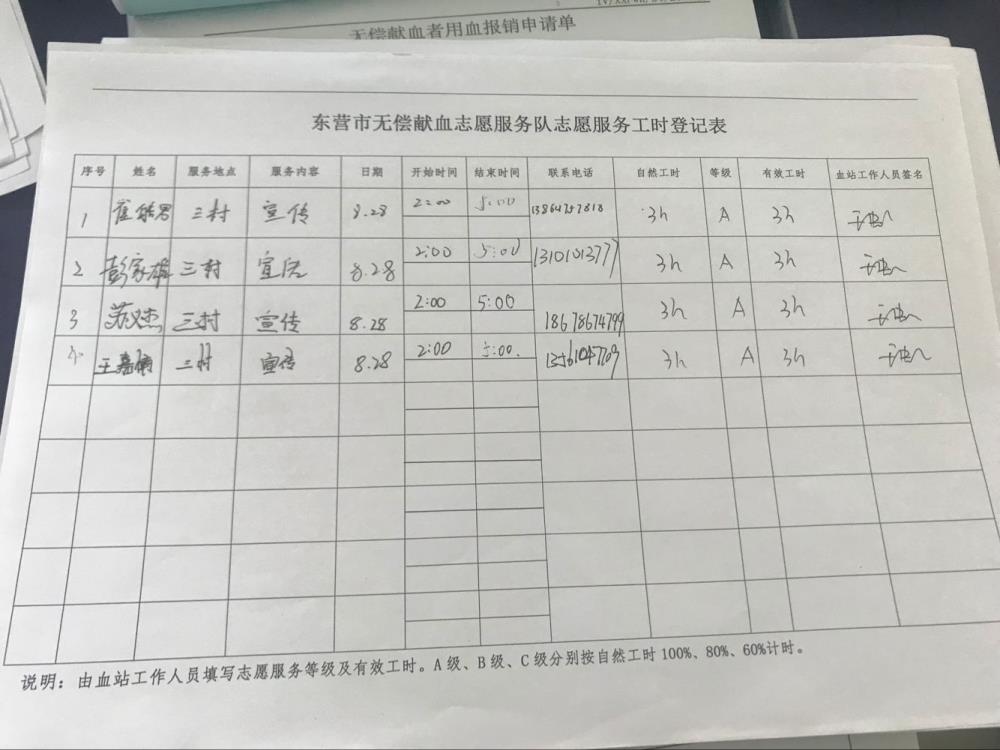 无偿献血者用血报销申请单
东营市无偿献血志愿服务队志愿服务工时登记表
序号 姓名 服务地点 服务内容 日期 开始时间 结束时间 联系电话 自然工时 等级 有效工时 血站工作人员签名
1 三村 宣传 8.28 2:00 5:00 3h A 3h
2 彭家雄 三村 宣传 8.28 2:00 5:00 13101013777 3h A 3h
3 苏义杰 三村 宣传 8.28 2:00 5:00 18678674799 3h A 3h
4 三村 宣传 8.28 2:00 5:00 3h A 3h
说明：由血站工作人员填写志愿服务等级及有效工时。A级、B级、C级分别按自然工时100%、80%、60%计时。